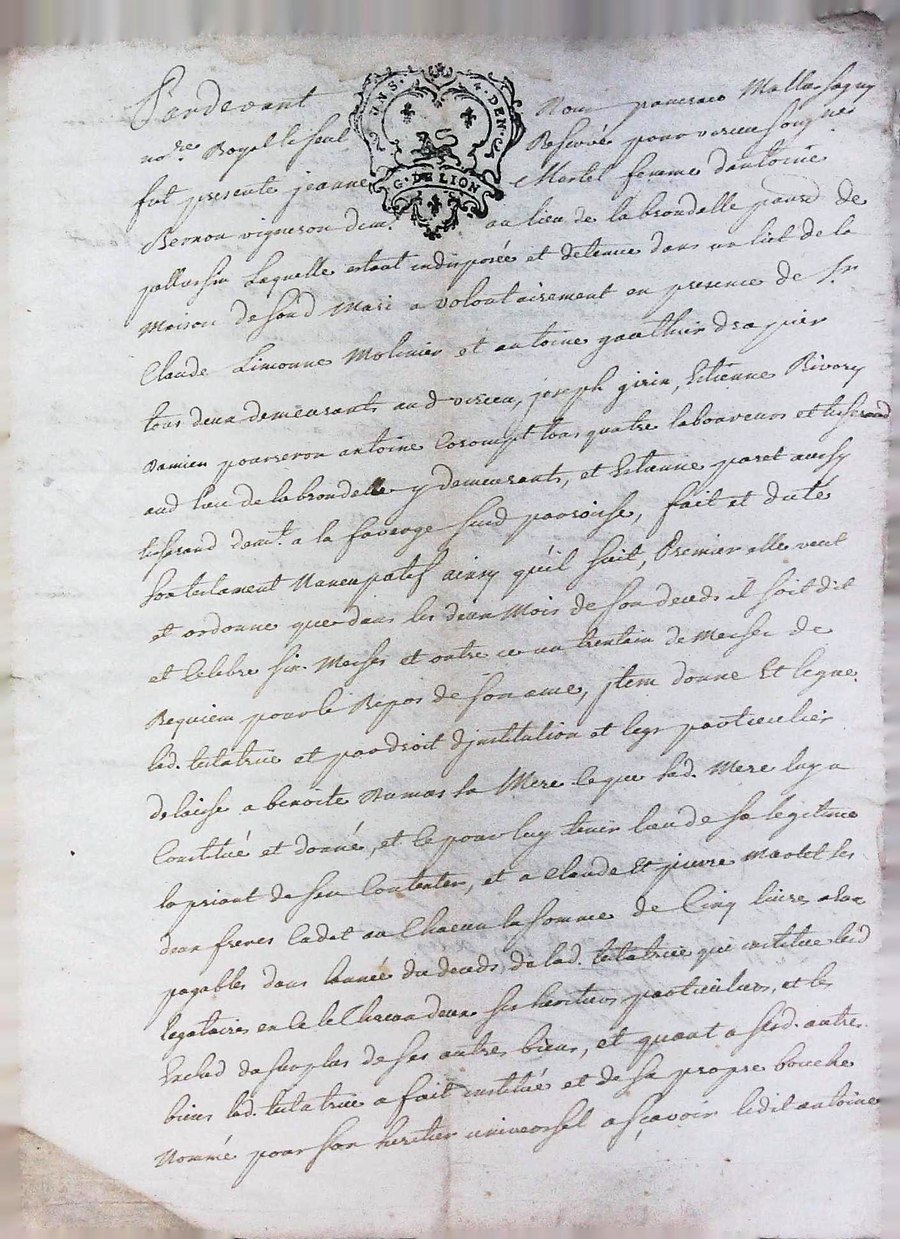 Pardevant UN.S. 4.DEN. Nous pancrace Mallassagny
no.re Royal le seul G. DE LION Reservé pour virieu soussigné
fut presente jeanne Martel femme d'antoine
Bernon vigneron dem.t au lieu de la brondelle paroisse de
pellussin Laquelle estant indisposée et detenue dans un lict de la
Maison de sond Mari a volontairement en presence de S.r
Claude Limonne Molinier et antoine gauthier drapier
tous deux demeurants aud virieu, joseph girin, Estienne Rivory
Damien antoine Corompt tous quatre laboureurs et tisserand
aud lieu de la brondelle y demeurants, et Estienne paret aussy
tisserand dem.t a la faverge susd paroisse, fait et dicté
son testament Nuncupatif ainsy qu'il suit, Premier elle veut
et ordonne que dans les deux Mois de son deceds il soit dit
et celebré six Messes et outre ce un trentain de Messes de
Requiem pour le Repos de son ame, jtem donne Et legue
lad. testatrice et par droit d'jnstitution et legs particulier
delaisse a benoite Dumas sa Mere ce que lad. Mere luy a
Constitué et donné, et ce pour luy tenir lieu de sa legitime
la priant de s'en Contenter, et a Claude Et pierre Martel ses
deux freres Cadet au Chacun la somme de Cinq livres a eux
payables dans l'année du deceds de lad. testatrice qui institue lesd
legataires en ce le Chacun deux ses heritiers particuliers, et les
Exclud du surplus de ses autres biens, et quant a sesd. autres
biens lad. testatrice a fait institué et de sa propre bouche
Nommé pour son heritier universel a sçavoir ledit antoine